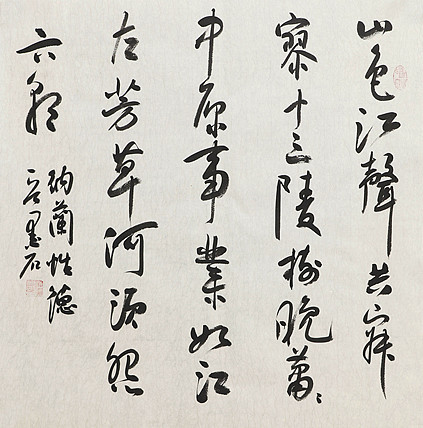 山色江聲共寂
寥十三陵樹晚蕭々
中原事業如江
左芳草何須怨
六朝
納蘭性德
墨石